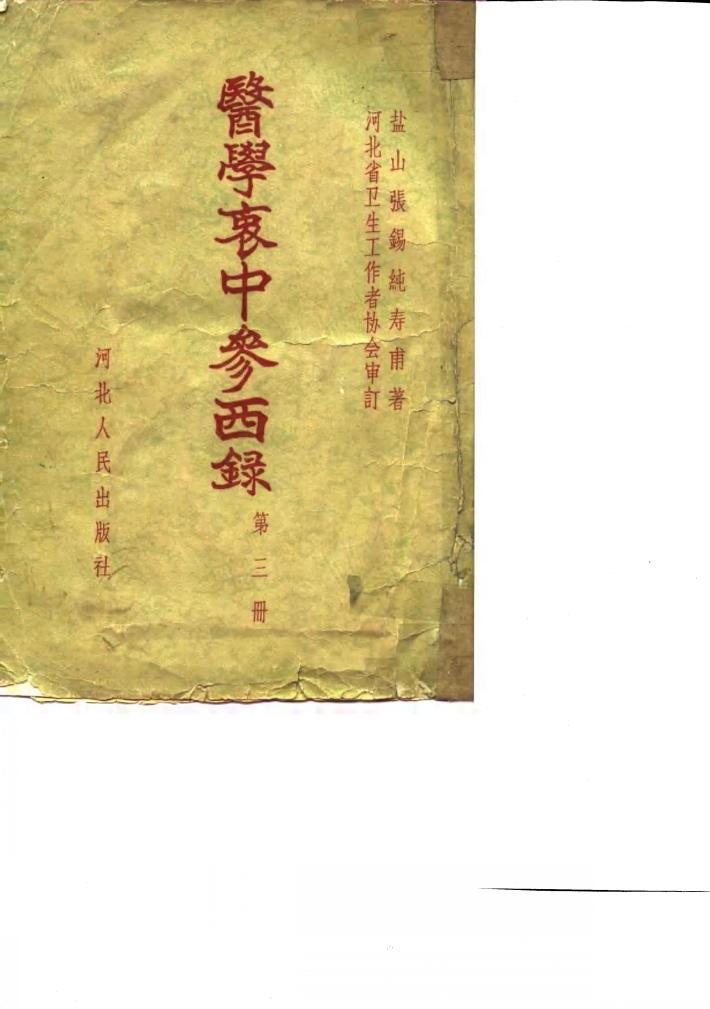 盐山張錫純寿甫著
河北省卫生工作者协会审訂
醫學衷中參西録
第三冊
河北人民出版社